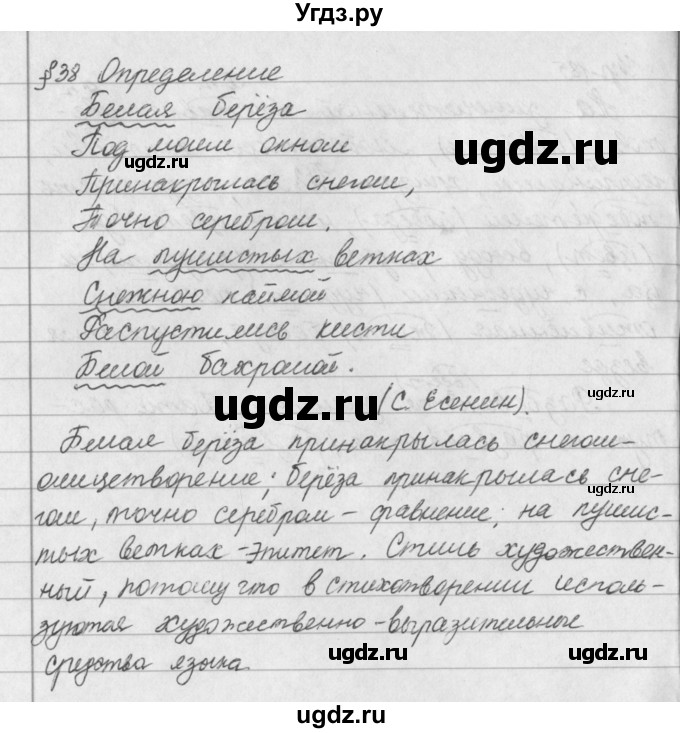 Угдз.ру
§38 Определение
Белая берёза
Под моим окном
Принакрылась снегом,
Точно серебром.
На пушистых ветках
Снежною каймой
Распустились кисти
Белой бахромой.
(С. Есенин).
Белая берёза принакрылась снегом-
олицетворение; берёза принакрылась сне-
гом, точно серебром - сравнение; на пушис-
тых ветках - эпитет. Стиль художествен-
ный, потому что в стихотворении исполь-
зуются художественно-выразительные
средства языка.
ugdz.ru
ugdz.ru
ugdz.ru
ugdz.ru
ugdz.ru
ugdz.ru
ugdz.ru
ugdz.ru
ugdz.ru